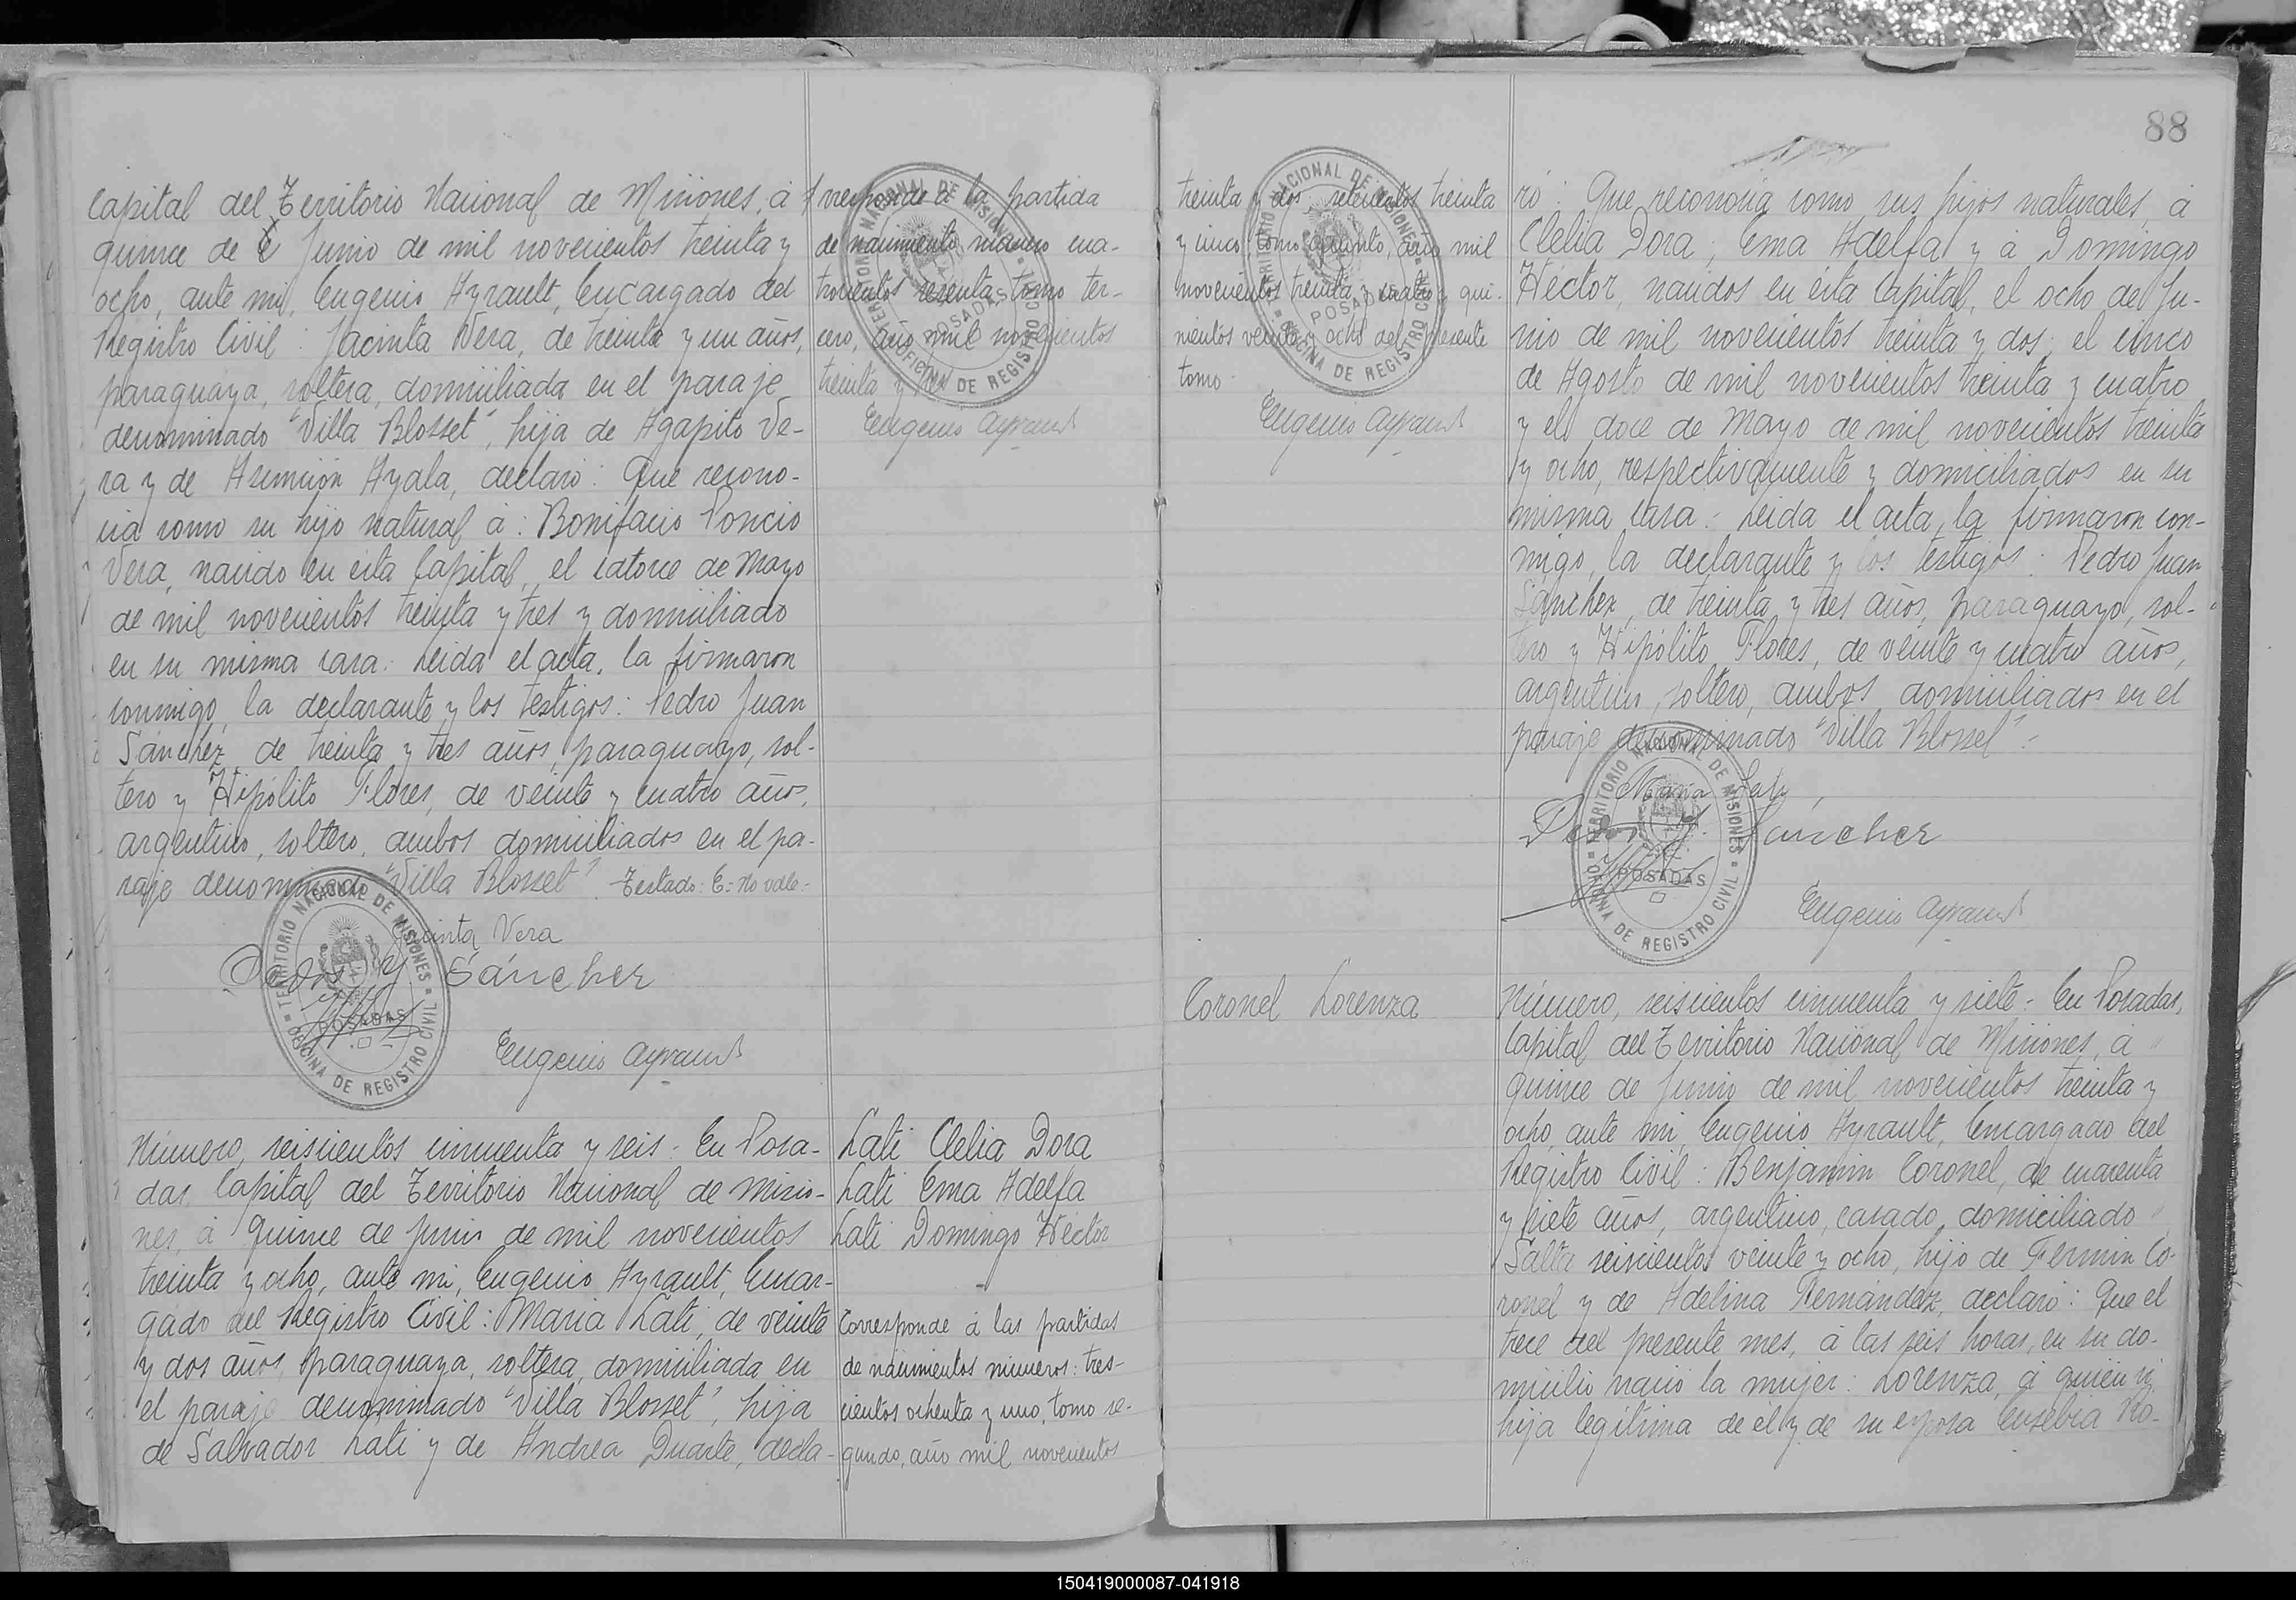 Capital del Territorio Nacional de Misiones, á
quince de E Junio de mil novecientos treinta y
ocho, ante mi, Eugenio Ayrault, Encargado del
Registro Civil: Jacinta Vera, de treinta y un años,
paraguaya, soltera, domiciliada en el paraje
denominado "Villa Blosset", hija de Agapito Ve-
ra y de Asunción Ayala, declaró: Que recono-
cia como su hijo natural á: Bonifacio Poncio
Vera, nacido en esta Capital, el catorce de Mayo
de mil novecientos treinta y tres y domiciliado
en su misma casa. Leida el acta, la firmaron
conmigo, la declarante y los testigos: Pedro Juan
Sánchez, de treinta y tres años, paraguayo, sol-
tero y Hipólito Flores, de veinte y cuatro años,
argentino, soltero, ambos domiciliados en el pa-
raje denominado "Villa Blosset". Testado: E= No vale.-
Jacinta Vera
Pedro J. Sáncher
Eugenio Ayrault
TERRITORIO NACIONAL DE MISIONES
POSADAS
OFICINA DE REGISTRO CIVIL
rresponde a la partida
de nacimiento número cua-
trocientos sesenta, tomo ter-
cero, año mil novecientos
treinta y
Eugenio Ayrault
TERRITORIO NACIONAL DE MISIONES
POSADAS
OFICINA DE REGISTRO CIVIL
Número, seiscientos cincuenta y seis.- En Posa-
das, Capital del Territorio Nacional de Misio-
nes, á quince de Junio de mil novecientos
treinta y ocho, ante mi, Eugenio Ayrault, Encar-
gado del Registro Civil: Maria Lati, de veinte
y dos años, paraguaya, soltera, domiciliada en
el paraje denominado "Villa Blosset", hija
de Salvador Lati y de Andrea Duarte, decla-
Lati Clelia Dora
Lati Ema Adelfa
Lati Domingo Héctor
Corresponde á las partidas
de nacimientos números: tres-
cientos ochenta y uno, tomo se-
gundo, año mil novecientos
88
treinta y dos, setecientos treinta
y cinco, tomo quinto, año mil
novecientos treinta y cuatro y qui-
nientos veinte y ocho del presente
tomo.
Eugenio Ayrault
TERRITORIO NACIONAL DE MISIONES
POSADAS
OFICINA DE REGISTRO CIVIL
ró: Que reconocia como sus hijos naturales, á
Clelia Dora; Ema Adelfa y á Domingo
Héctor, nacidos en esta Capital, el ocho de Ju-
nio de mil novecientos treinta y dos; el cinco
de Agosto de mil novecientos treinta y cuatro
y el doce de Mayo de mil novecientos treinta
y ocho, respectivamente y domiciliados en su
misma casa.- Leida el acta, la firmaron con-
migo, la declarante y los testigos: Pedro Juan
Sánchez, de treinta y tres años, paraguayo, sol-
tero y Hipólito Flores, de veinte y cuatro años,
argentino, soltero, ambos domiciliados en el
paraje denominado "Villa Blosset".-
Maria Lati
Pedro J. Sancher
Eugenio Ayrault
TERRITORIO NACIONAL DE MISIONES
POSADAS
OFICINA DE REGISTRO CIVIL
Coronel Lorenza
Número, seiscientos cincuenta y siete.- En Posadas,
Capital del Territorio Nacional de Misiones, á
quince de Junio de mil novecientos treinta y
ocho, ante mi, Eugenio Ayrault, Encargado del
Registro Civil: Benjamin Coronel, de cuarenta
y siete años, argentino, casado, domiciliado
Salta seiscientos veinte y ocho, hijo de Fermin Co-
ronel y de Adelina Fernández, declaró: Que el
trece del presente mes, á las seis horas, en su do-
micilio nació la mujer: Lorenza, á quien
hija legitima de él y de su esposa Eusebia Ro-
150419000087-041918